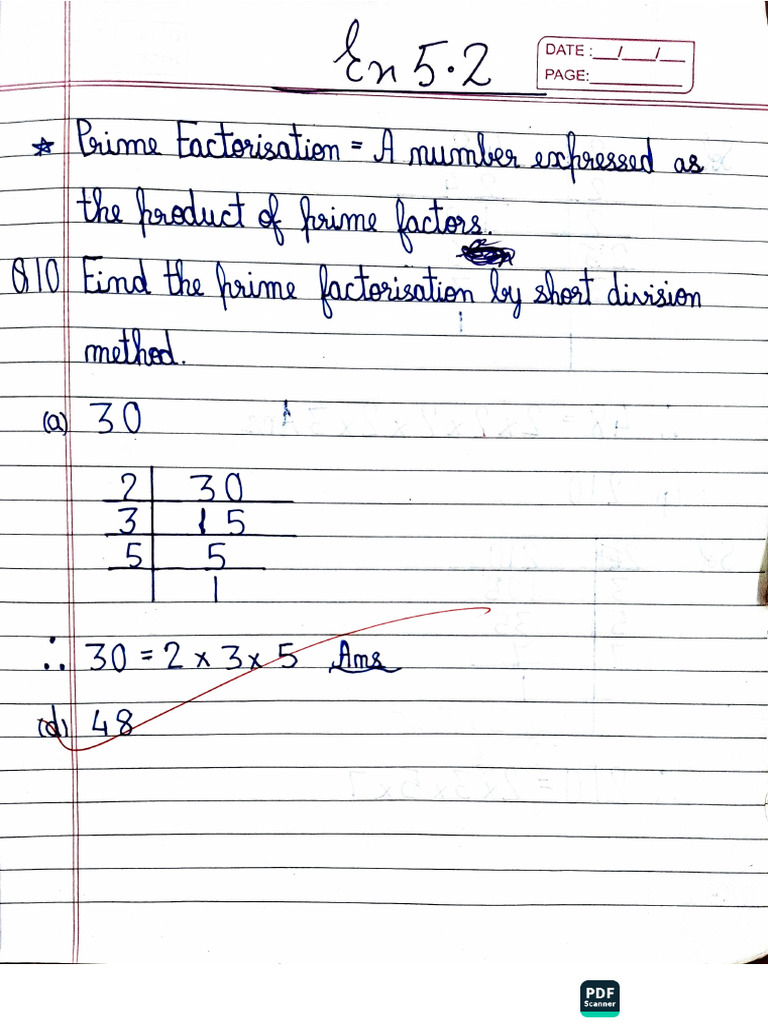 Ex 5.2
DATE : __/__/__
PAGE: ________
* Prime Factorisation = A number expressed as
the product of prime factors.
Q10 Find the prime factorisation by short division
method.
(a) 30
2 | 30
3 | 15
5 | 5
| 1
∴ 30 = 2 × 3 × 5 Ans
(d) 48
PDF
Scanner